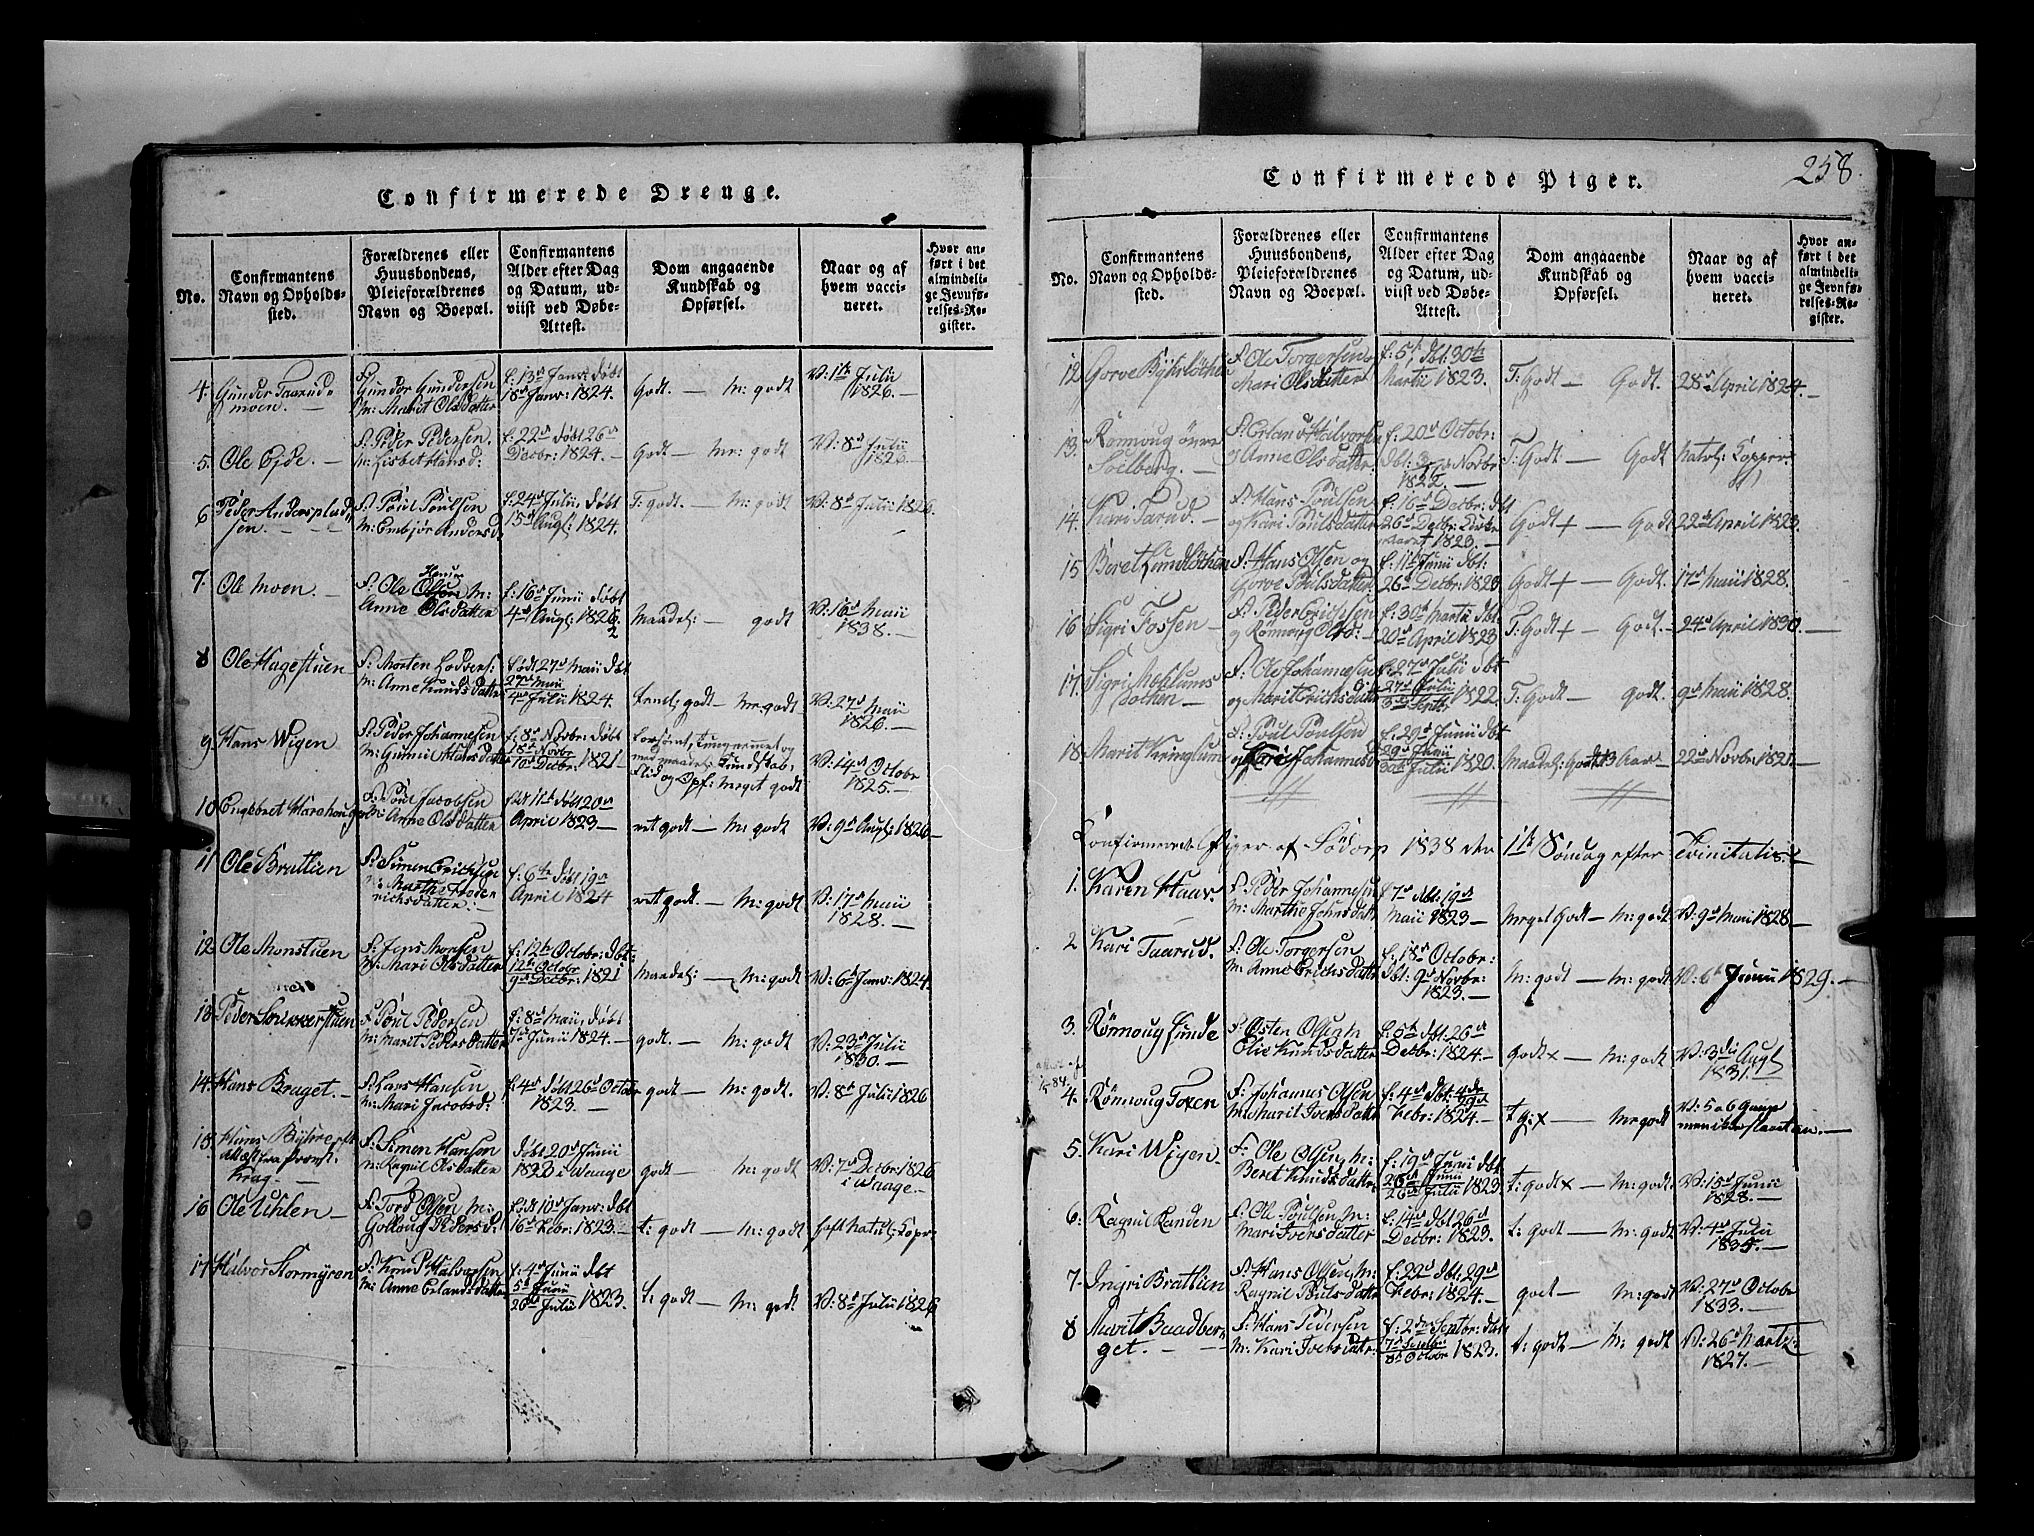 Confirmerede Drenge.
No.
Confirmantens Navn og Opholdssted.
Forældrenes eller Huusbondens, Pleieforældrenes Navn og Boepæl.
Confirmantens Alder efter Dag og Datum, udviist ved Døbe-Attest.
Dom angaaende Kundskab og Opførsel.
Naar og af hvem vaccineret.
Hvor anført i det almindelige Jevnførelses-Register.
4. Gunder Taarud-moen. F: Gunder Gundersen M: Marit Olsdatter f: 13d Janv: døbt 18d Janv: 1824. Godt. — M: godt V: 1te Julii 1826. —
5. Ole Eide. — F: Peder Pedersen. M: Lisbet Hansd: f: 22d døbt 26d Decbr: 1824. — Godt — M: godt V: 8d Julii 1826. —
6 Peder Andersplads jen. — F: Poul Poulsen M: Embjør Andersd: f: 24d Julii, døbt 15d Augl: 1824. T. godt. — M: godt V: 8d Julii 1826.
7. Ole Moen. — F. Ole Olsen M: Anne Olsdatter f: 16d Junii døbt 4d Augl: 1822 Maadel: — godt V: 16d Maii 1838. —
8 Ole Hagestuen F: Morten M: Anne Knudsdatter født 27d Maii dbt 27d Maii 4d Julii 1824. godt — M: godt V: 27d Maii 1826. —
9 Hans Wigen F: Peder Johannesen M: Gunnil Hansdatter f: 8d Novbr: døbt 18d Novbr 10d Decbr: 1821 — med maadel: Kundskab, Flid og Opf: Meget godt V: 14d Octobr 1825. —
10 Engebret Harehoug F: Poul Jacobsen M: Anne Olsdatter født 11d døbt 20d April 1823 — ret godt — M: godt V: 9d Augl: 1826 —
11 Ole Bratlien F: Simen Erichsen M: Marthe Hodenrichsdatter. — f: 6te døbt 19d April 1824 ret godt. — M: godt. V: 17d Maii 1828. —
12. Ole Monstuen F: Jens Monsen M: Mari Olsdatter f: 12te Octobr: dbt: 12te Octobr 9d Decbr: 1821 Maadel: — M: godt V: 6d Janv: 1824.
13. Peder F: Poul Pedersen M: Marit Pedersdatter f: 8d Maii, døbt 7d Junii 1824. — godt. — M: godt V: 23d Julii 1830. —
14. Hans Braget. — F: Lars Hansen M: Mari Jacobsd: f: 4d døbt 26d Octobr 1823. — godt — M: godt. V: 8d Julii 1826
15. Hans F: Simen Hansen M: Ragnil Olsdatter døbt 20d Junii 1822 i Waage godt — M: godt V: 7d Decbr: 1826 i Waage. —
16 Ole Uhlen — F: Tord Olsen M: Gollaug Pedersd: født 10d Janv: dbt 16d Febr: 1823. — t: godt — M: godt haft natul: Kopr.
17 Halvor Stormyren F: Knud Halvorsen M: Anne Erlandsdatter f: 4d Junii dbt 5d Junii 20d Julii 1823. t: godt — M: godt V: 8d Julii 1826
Confirmerede Piger.
258.
No.
Confirmantens Navn og Opholdssted.
Forældrenes eller Huusbondens, Pleieforældrenes Navn og Boepæl.
Confirmantens Alder efter Dag og Datum, udviist ved Døbe-Attest.
Dom angaaende Kundskab og Opførsel.
Naar og af hvem vaccineret.
Hvor anført i det almindelige Jevnførelses-Register.
12 Gorve F. Ole Torgersen Mari Olsdatter f: 5t dbt: 30te Martii 1823. T: Godt — Godt. 28d April 1824. —
13. Rønnoug øvre Soelberg. — F. Erland Halvorsen og Anne Olsdatter f: 20d Octobr: dbt: 3d Novbr 1822. — T: Godt — Godt Natvl: Kopper
14. Kari Tarud. — F. Hans Poulsen og Kari Poulsdatter f: 16d Decbr: dbt 26d Decbr: 1823. — Godt + — Godt 22d April 1823.
15 Beret Lundløkken F: Hans Olsen og Gorve Poulsdatter f: 11te Junii dbt: 26d Decbr: 1823 Godt + — Godt. 17d Maii 1828. —
16 Sigri Fossen — F: Peder Erichsen og Rønnoug Olsd: — f: 30d Martii dbt: 20d April 1823 T: Godt + — Godt. — 24d April 1830. —
17. Sigri — F: Ole Johannesen og Marit Erichsdatter f: 27d Julii dbt 27d Julii 3d Septb: 1822. T: Godt — godt. 9d Maii 1828.
18. Marit Kringlum F: Poul Poulsen og Kari Johannesd f: 29d Junii dbt 29d Junii 30d Julii 1820. Maadel: Godt Aar — 22d Novbr: 1821. —
Confirmerede Piger af Sødorp 1838 den 1te Søndag efter Trinitatis. —
1. Karen Haav. F: Peder Johannesen M: Marthe Johnsdatter f 7d dbt: 19d Maii 1823 — Meget Godt — M: godt V: 9d Maii 1828 —
2 Kari Taarud. F: Ole Torgersen M: Anne Erichsdatter f: 18d Octobr: dbt: 9d Novbr: 1823. — M: godt — M: godt V: 6d Junii 1829. —
3. Rønnoug Sunde F: Østen Olsen M: Elie Knudsdatter f: 5te dbt: 26d Decbr: 1824. — godt x — M: godt V: 3die Augl 1831. —
4. Rønnoug Toxen F: Johannes Olsen M: Marit Iversdatter f: 4d dbt: Febr: 1824. — t g: x — M: godt V: 5 a 6 Gange men ikke slaaet an. —
5. Kari Wigen. F: Ole Olsen, M: Beret Knudsdatter f: 19d Junii dbt 26d Junii 26d Julii 1823. t: godt x — M: godt. V: 15d Junii 1828. —
6: Ragnil Randen F: Ole Poulsen, M: Mari Iversdatter f: 14d dbt 26d Decbr: 1823. t: godt — M: godt V: 4d Julii 1835. —
7. Ingri Bratlien F: Hans Olsen, M: Ragnil Poulsdatter f: 22d dbt: 29d Febr: 1824. — godt — M: godt V: 27d Octobr 1833. —
8 Marit Baadberget. — F: Hans Pedersen M: Kari Iversdatr: f: 2den Septbr: dbt 7d Septbr: 8d Octobr 1823. t: godt — M: godt V: 26d Martz: 1827. —